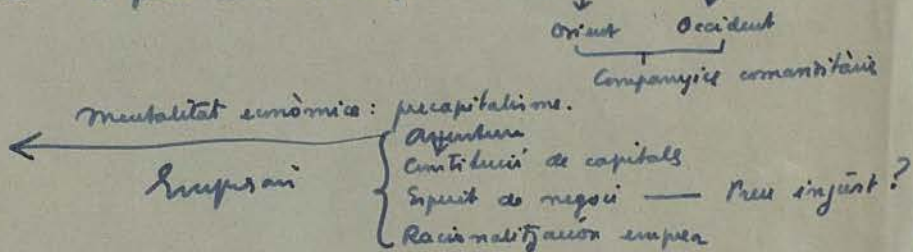 Orient Occident
Companyies comanditàries
Mentalitat econòmica: precapitalisme.
Aventura
Constitució de capitals
Empresari Esperit de negoci — Preu injúst?
Racionalització empresa